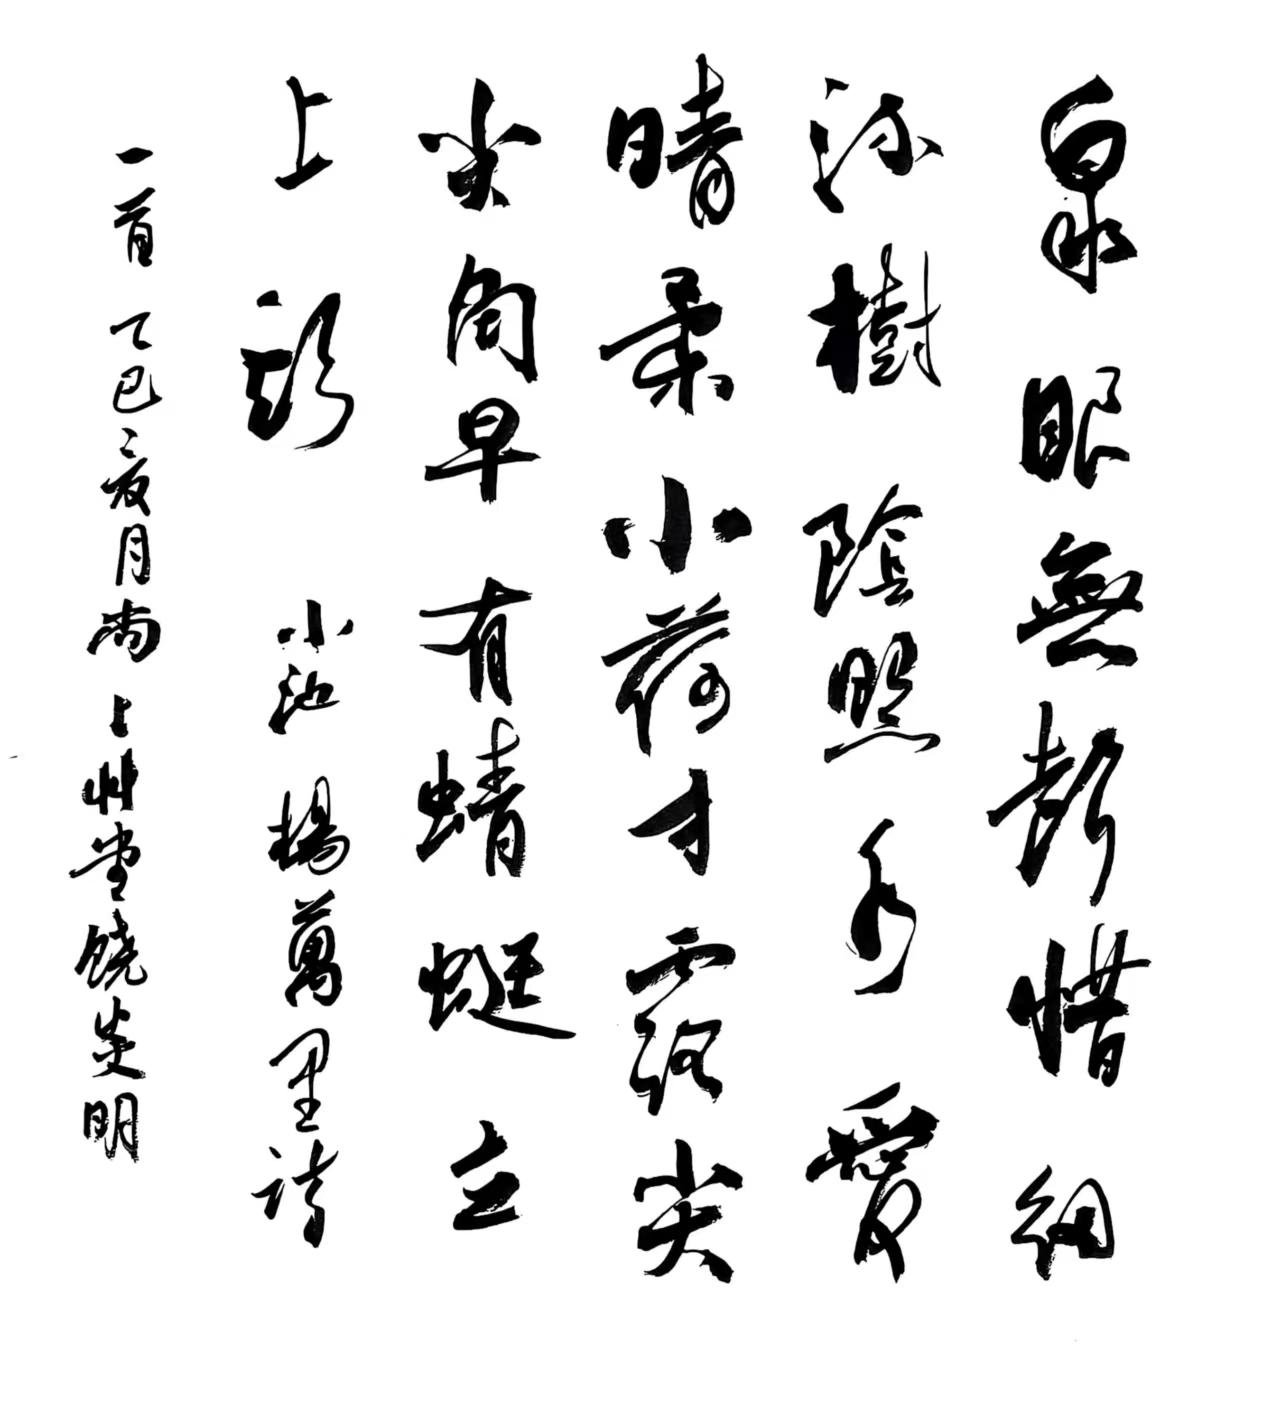 泉眼無聲惜細
流樹陰照水愛
晴柔小荷才露尖
尖角早有蜻蜓立
上頭 小池 楊萬里詩
一首 乙巳夏月尚艸堂饶炎明